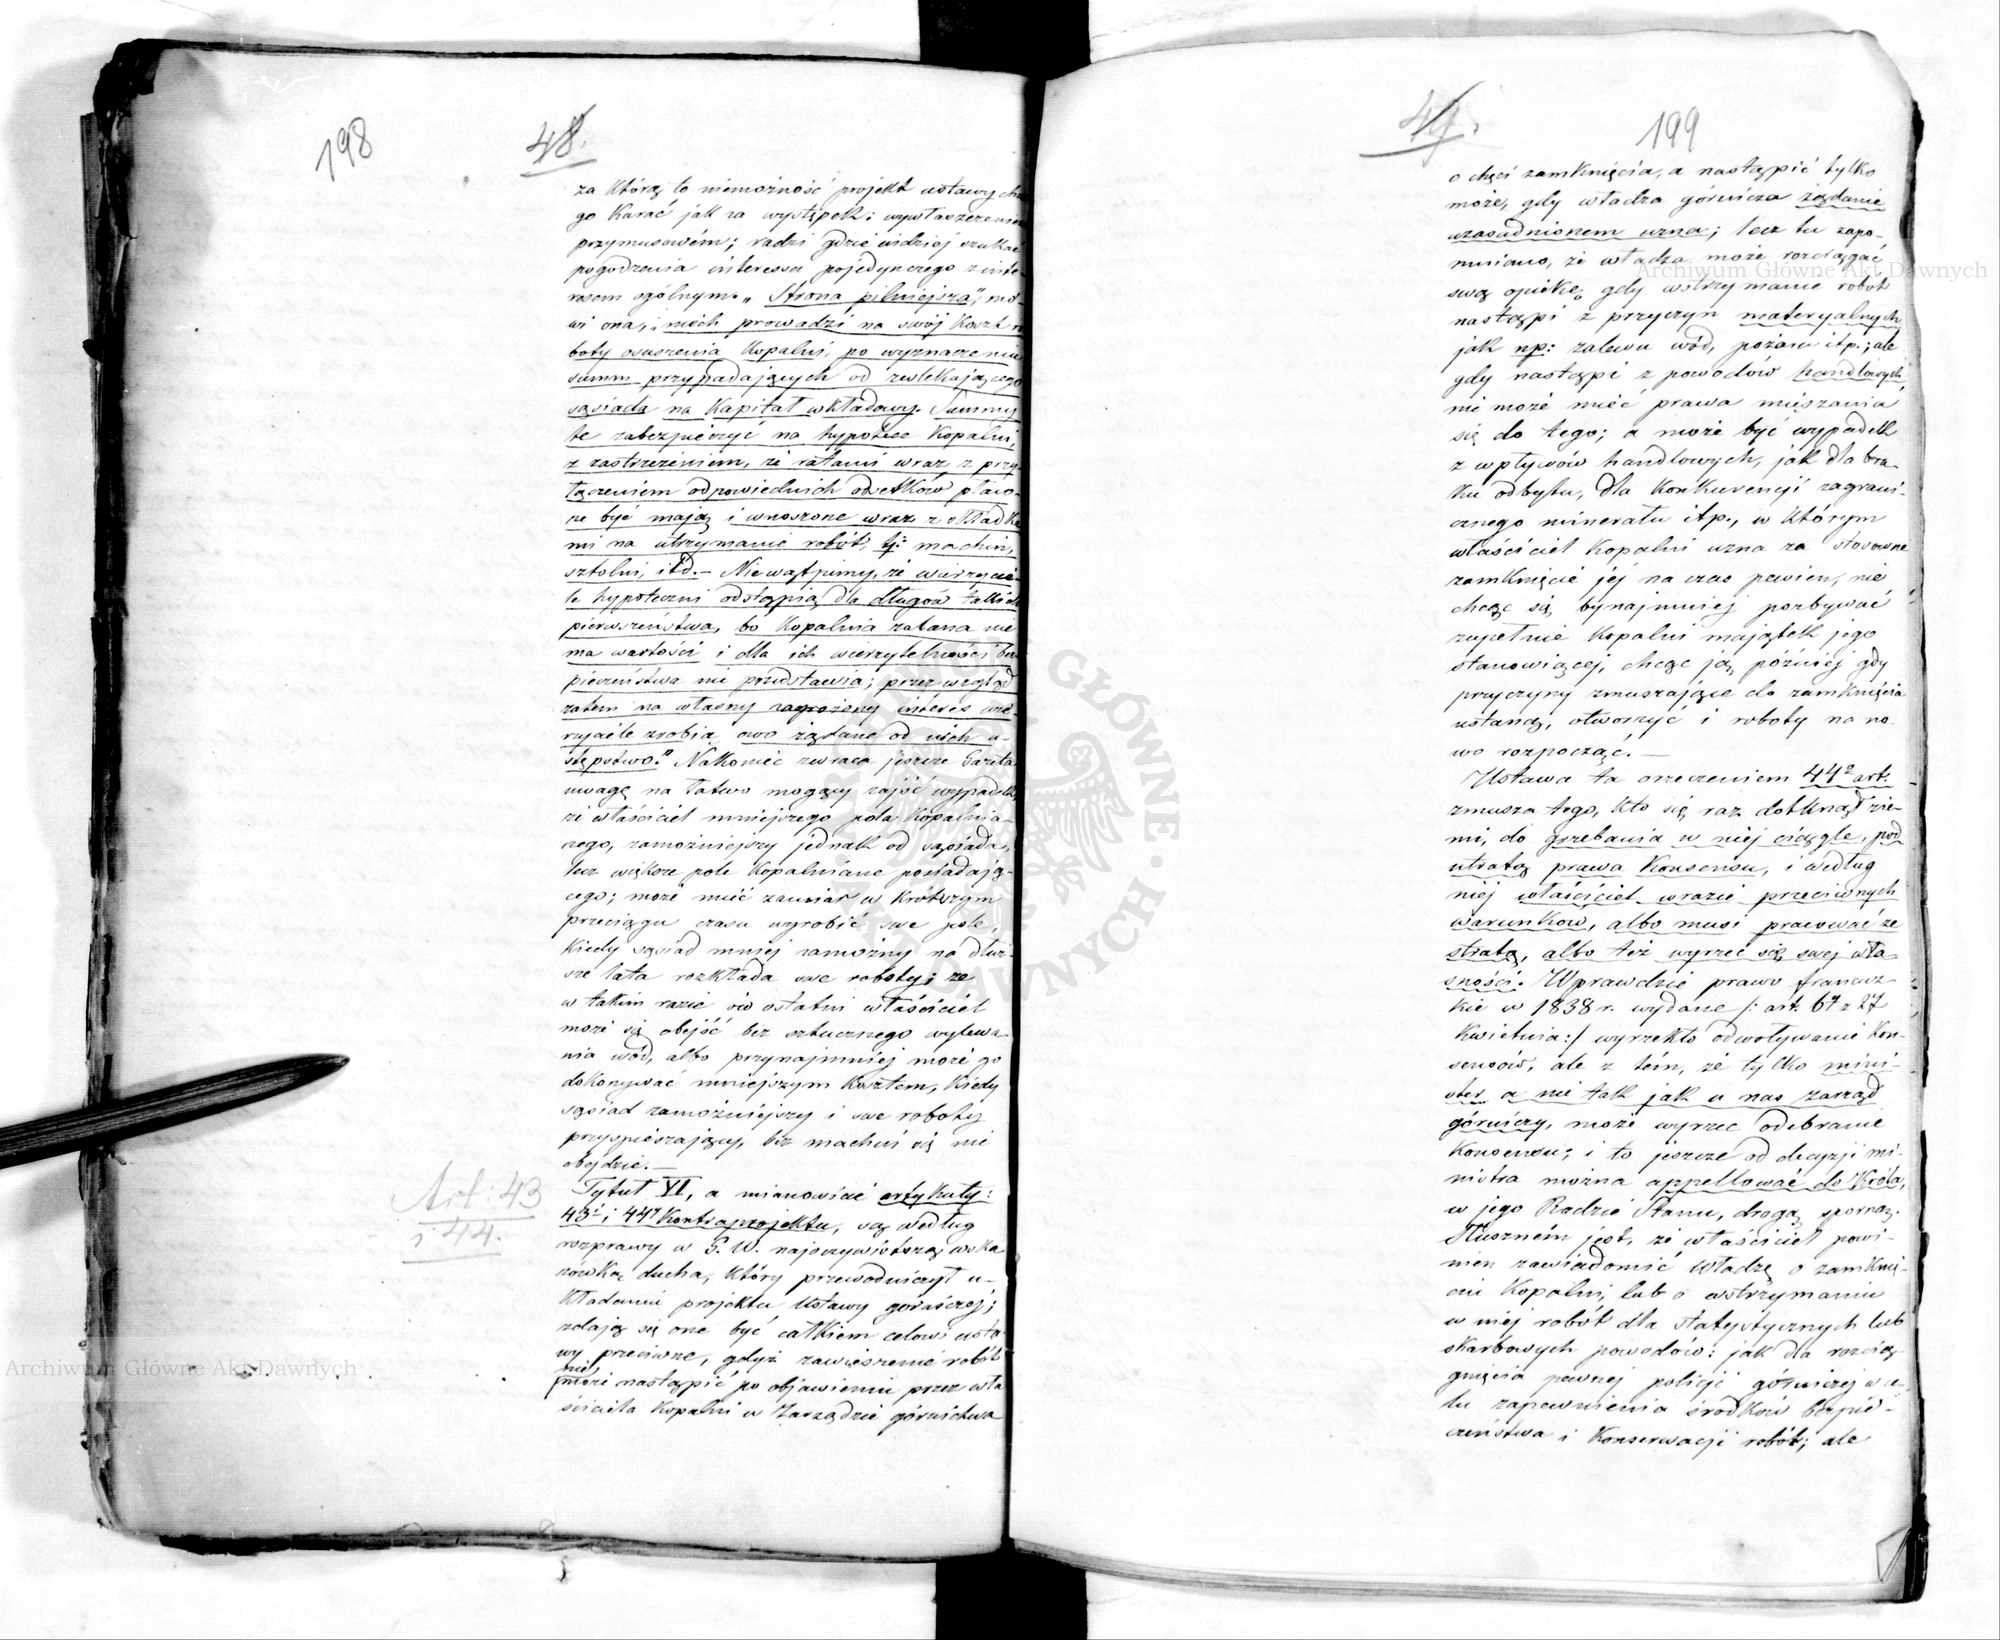 198
48.
za którą to niemożność projekt ustawy chce
go karać jak za występek; wywłaszczeniem
przymusowém; radzi gdzie indziej szukać
pogodzenia interessu pojedynczego z inte-
resem ogólnym. „Strona pilniejsza", mó-
wi ona, „niech prowadzi na swój koszt ro
boty osuszenia kopalni, po wyznaczeniu
summ przypadających od zwlekającego
sąsiada na kapitał wkładowy. Summy
te zabezpieczyć na hypotece kopalni,
z zastrzeżeniem, że ratami wraz z przy-
łączeniem odpowiednich odsetków płaco-
ne być mają i wnoszone wraz z składka
mi na utrzymanie robót, tj: machin,
sztolni, itd.– Nie wątpimy, że wierzycie-
le hypoteczni odstąpią dla długów takich
pierwszeństwa, bo kopalnia zalana nie
ma wartości i dla ich wierzytelności bez-
pieczeństwa nie przedstawia; przez wzgląd
zatem na własny zagrożony interes wie-
rzyciele zrobią owo żądane od nich u-
stępstwo." Nakoniec zwraca jeszcze Gazeta
uwagę na łatwo mogący zajść wypadek,
że właściciel mniejszego pola kopalnia-
nego, zamożniejszy jednak od sąsiada,
lecz większe pole kopalniane posiadają-
cego; może mieć zamiar w krótszym
przeciągu czasu wyrobić swe pole,
kiedy sąsiad mniej zamożny na dłuż-
sze lata rozkłada swe roboty; że
w takim razie ów ostatni właściciel
może się obejść bez sztucznego wylewa-
nia wód, albo przynajmniéj może go
dokonywać mniejszym kosztem, kiedy
sąsiad zamożniejszy i swe roboty
przyspieszający, bez machin się nie
obejdzie.—
Art: 43
i 44.
Tytuł VI, a mianowicie artykuły:
43i i 44y kontraprojektu, są według
rozprawy w G. W. najoczywistszą wska
zówką ducha, który przewodniczył u-
kładaniu projektu Ustawy górniczej;
zdają się one być całkiem celowi usta-
wy przeciwne, gdyż zawieszenie robót
nie
może nastąpić po objawieniu przez wła
ściciela kopalni w Zarządzie górnictwa
49.
199
o chęci zamknięcia, a nastąpić tylko
może, gdy władza górnicza żądanie
uzasadnionem uzna; lecz tu zapo-
mniano, że władza może rozciągać
swą opiekę, gdy wstrzymanie robót
nastąpi z przyczyn materyalnych
jak np: zalewu wód, pożaru itp.; ale
gdy nastąpi z powodów handlowych
nie może mieć prawa mieszania
się do tego; a może być wypadek
z wpływów handlowych, jak dla bra-
ku odbytu, dla konkurencji zagrani-
cznego minerału itp., w którym
właściciel kopalni uzna za stosowne
zamknięcie jéj na czas pewien, nie
chcąc się bynajmniej pozbywać
zupełnie kopalni majątek jego
stanowiącej, chcąc ją później gdy
przyczyny zmuszające do zamknięcia
ustaną, otworzyć i roboty na no-
wo rozpocząć.—
Ustawa ta orzeczeniem 44o art:
zmusza tego, kto się raz dotknął zie-
mi, do grzebania w niéj ciągle, pod
utratą prawa konsensu, i według
niéj właściciel w razie przeciwnych
warunków, albo musi pracować ze
stratą, albo też wyrzec się swej wła-
sności. Wprawdzie prawo francuz-
kie w 1838 r. wydane /: art. 67 z 27
kwietnia:/ wyrzekło odwoływanie kon-
sensów, ale z tém, że tylko mini-
ster a nie tak jak u nas zarząd
górniczy, może wyrzec odebranie
konsensu; i to jeszcze od decyzji mi-
nistra można appellować do Króla,
w jego Radzie Stanu, drogą sporną.
Słuszném jest, że właściciel powi-
nien zawiadomić władzę o zamknię-
ciu kopalni, lub o wstrzymaniu
w niéj robót dla statystycznych lub
skarbowych powodów: jak dla rozcią-
gnięcia pewnej policji górniczej w ce-
lu zapewnienia środków bezpie-
czeństwa i konserwacji robót; ale
Archiwum Główne Akt Dawnych
Archiwum Główne Akt Dawnych